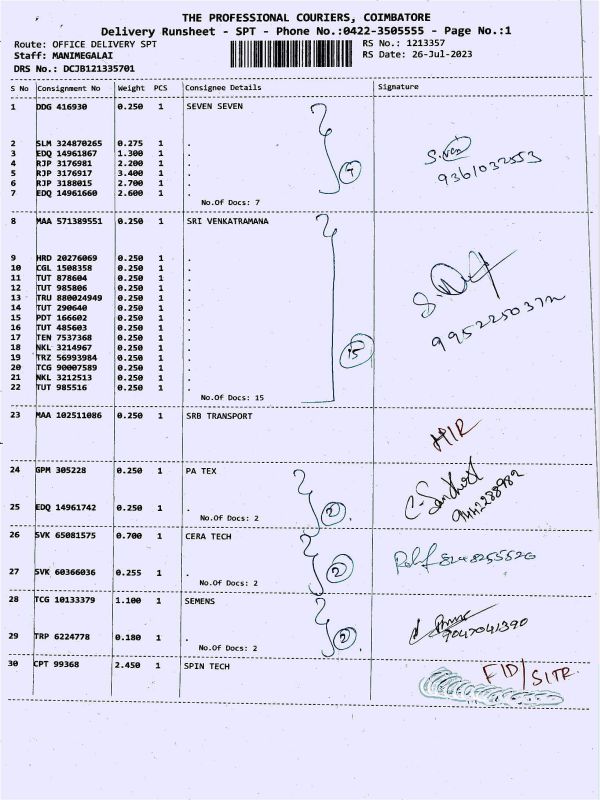 THE PROFESSIONAL COURIERS, COIMBATORE
Delivery Runsheet - SPT - Phone No.:0422-3505555 - Page No.:1
Route: OFFICE DELIVERY SPT RS No.: 1213357
Staff: MANIMEGALAI RS Date: 26-Jul-2023
DRS No.: DCJB121335701
S No Consignment No Weight PCS Consignee Details Signature
1 DDG 416930 0.250 1 SEVEN SEVEN
2 SLM 324870265 0.275 1 .
3 EDQ 14961867 1.300 1 .
4 RJP 3176981 2.200 1 .
5 RJP 3176917 3.400 1 . 7 9361032553
6 RJP 3188015 2.700 1 .
7 EDQ 14961660 2.600 1 .
No.Of Docs: 7
8 MAA 571389551 0.250 1 SRI VENKATRAMANA
9 HRD 20276069 0.250 1 .
10 CGL 1508358 0.250 1 .
11 TUT 878604 0.250 1 .
12 TUT 985806 0.250 1 .
13 TRU 880024949 0.250 1 .
14 TUT 290640 0.250 1 .
15 PDT 166602 0.250 1 .
16 TUT 485603 0.250 1 .
17 TEN 7537368 0.250 1 .
18 NKL 3214967 0.250 1 . 15
19 TRZ 56993984 0.250 1 .
20 TCG 90007589 0.250 1 .
21 NKL 3212513 0.250 1 .
22 TUT 985516 0.250 1 .
No.Of Docs: 15
23 MAA 102511086 0.250 1 SRB TRANSPORT
24 GPM 305228 0.250 1 PA TEX
25 EDQ 14961742 0.250 1 . 2
No.Of Docs: 2
26 SVK 65081575 0.700 1 CERA TECH
27 SVK 60366036 0.255 1 . 2
No.Of Docs: 2
28 TCG 10133379 1.100 1 SEMENS
29 TRP 6224778 0.180 1 . 2 9047041390
No.Of Docs: 2
30 CPT 99368 2.450 1 SPIN TECH FID/SITR